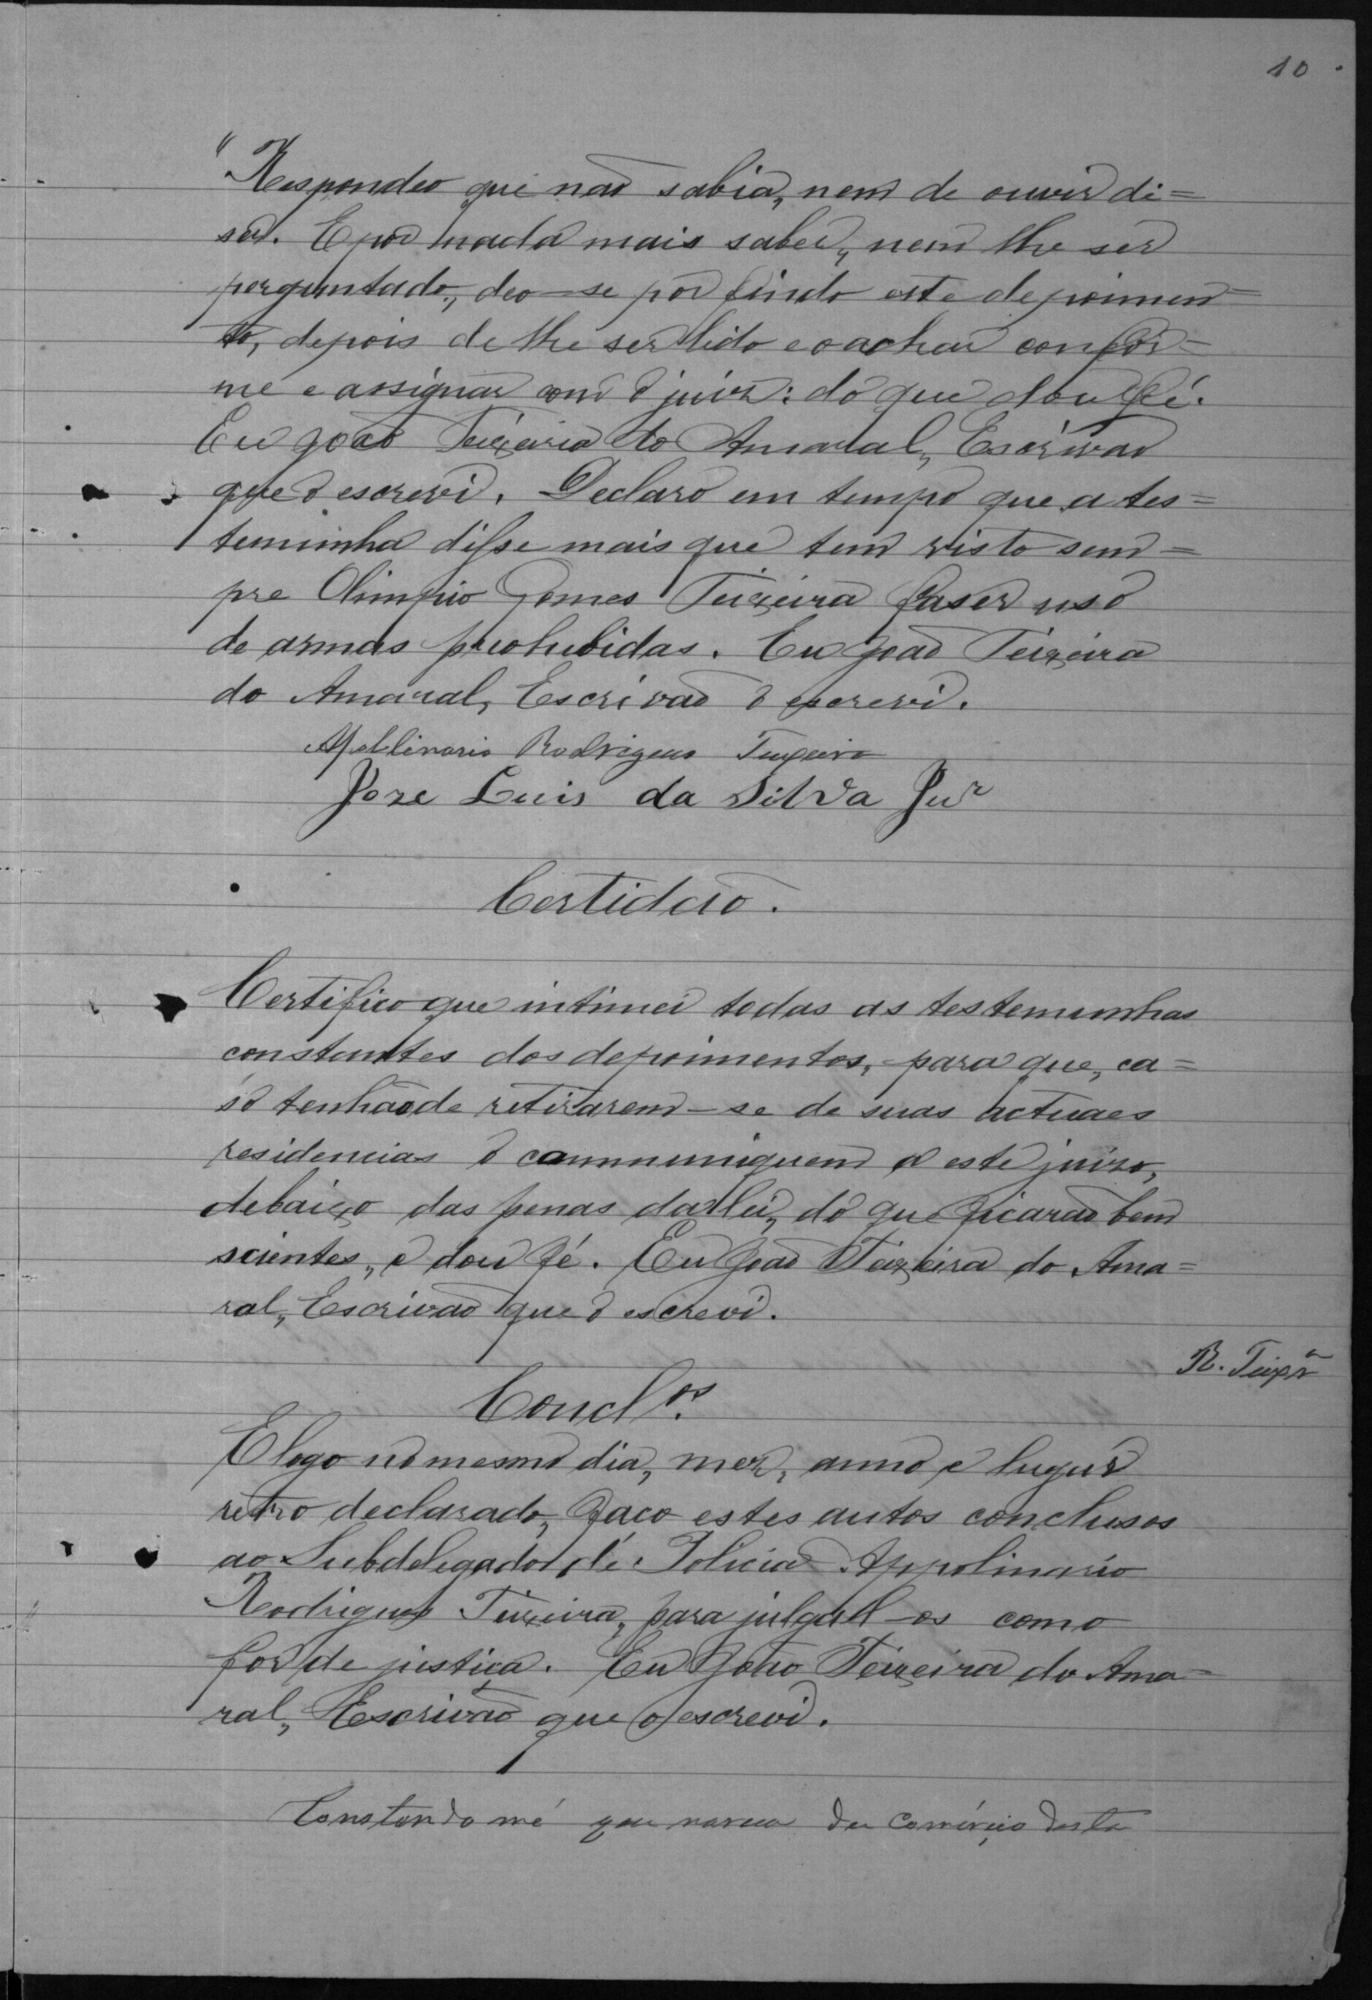 10
"Respondeo que não sabia, nem de ouvir di=
ser. E por nada mais saber, nem lhe ser
perguntado, deo-se por findo este depoimen=
to, depois de lhe ser lido e o achar confor=
me e assignar com o juiz: do que dou fé.
Eu João Teixeira do Amaral, Escrivão
que o escrevi. Declaro em tempo que a tes=
temunha disse mais que tem visto sem=
pre Olimpio Gomes Teixeira faser uso
de armas prohibidas. Eu João Teixeira
do Amaral, Escrivão o escrevi.
Apollinario Rodrigues Teixeira
Joze Luis da Silva Jur
Certidão.
Certifico que intimei todas as testemunhas
constantes dos depoimentos, para que, ca=
so tenhão de retirarem-se de suas actuaes
residencias o communiquem a este juizo,
debaixo das penas da lei, do que ficarão bem
scientes, e dou fé. Eu João Teixeira do Ama=
ral, Escrivão que o escrevi.
R. Teixrª
Conclos.
E logo no mesmo dia, mez, anno e lugar
retro declarado, faço estes autos conclusos
ao Subdelegado de Policia Appolinario
Rodrigues Teixeira, para julgal-os como
for de justiça. Eu João Teixeira do Ama=
ral, Escrivão que o escrevi.
Constando me que